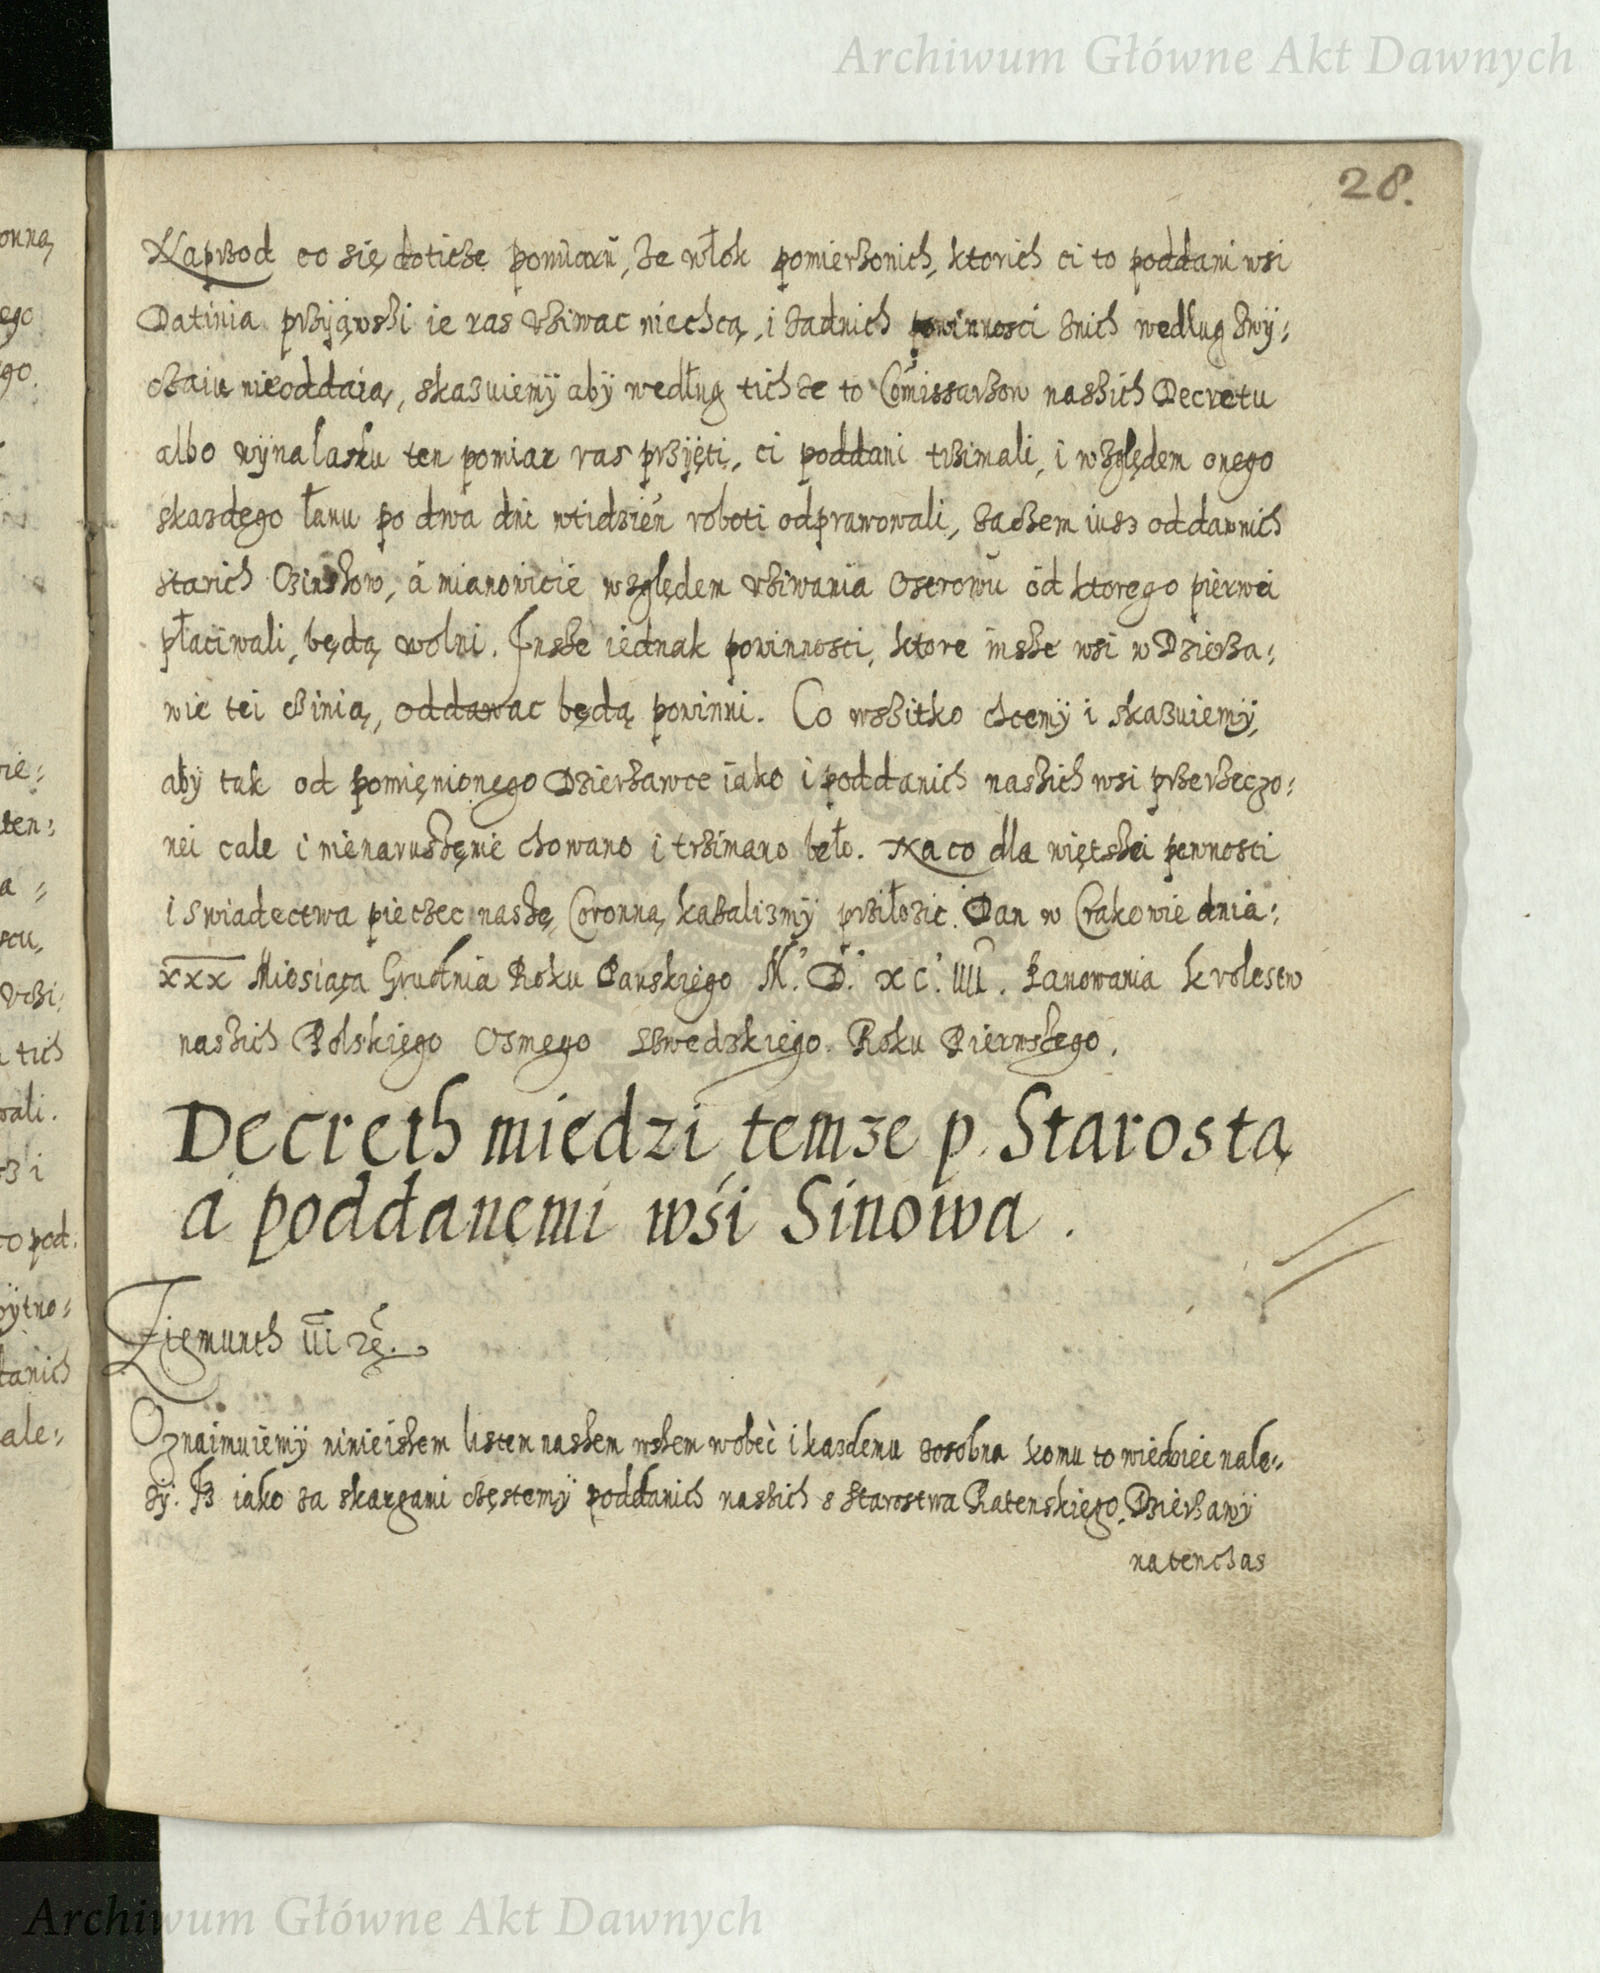 Archiwum Główne Akt Dawnych
28.
Naprzod co się doticze pomiaru, ze włok pomierzonich, ktorich ci to poddani wsi
Datinia przyjąwszi ie ras uziwac niechcą, i zadnich powinnosci znich według zwÿ:
czaiu nieoddaią, skazuiemÿ abÿ według tich ze to Comissarzow naszich Decretu
albo wÿnalasku ten pomiar ras przyięti, ci poddani trzimali, i względem onego
skazdego łanu po dwa dni wtidzień roboti odprawowali, zaczem iusz oddawnich
starich Czinszow, á mianowicie względem uziwania Ostrowu od ktorego pierwei
płaciwali, będą wolni. Insze iednak powinnosci, ktore insze wsi w Dzierza:
wie tei czinią, oddawac będą powinni. Co wszitko chcemÿ i skazuiemÿ,
abÿ tak od pomięnionego Dzierzawce iako i poddanich naszich wsi przerzeczo:
nei cale i nienaruszęnie chowano i trzimano beło. Na co dla więtszei pewnosci
i swiadectwa pieczec naszę Coronną kazalizmÿ prziłozic. Dan w Crakowie dnia:
xxx Miesiąca Grudnia Roku Panskiego M. D. xc. IIII. Panowania krolestw
naszich Polskięgo Osmego Szwedzkiego Roku Pierwszego.
Decreth między temze p. Starostą
a poddanemi wśi Sinowa.
Zigmunth III etc.
Oznaimuiemÿ ninieiszem listem naszem wszem wobec i kazdemu zosobna komu to wiedziec nale:
zÿ. Iz iako za skargami częstemÿ poddanich naszich s Starostwa Ratenskiego, Dzierzawÿ
natenczas
onną
ego
ten:
tich
wali.
to pod.
ÿtno:
danich
ale:
Archiwum Główne Akt Dawnych